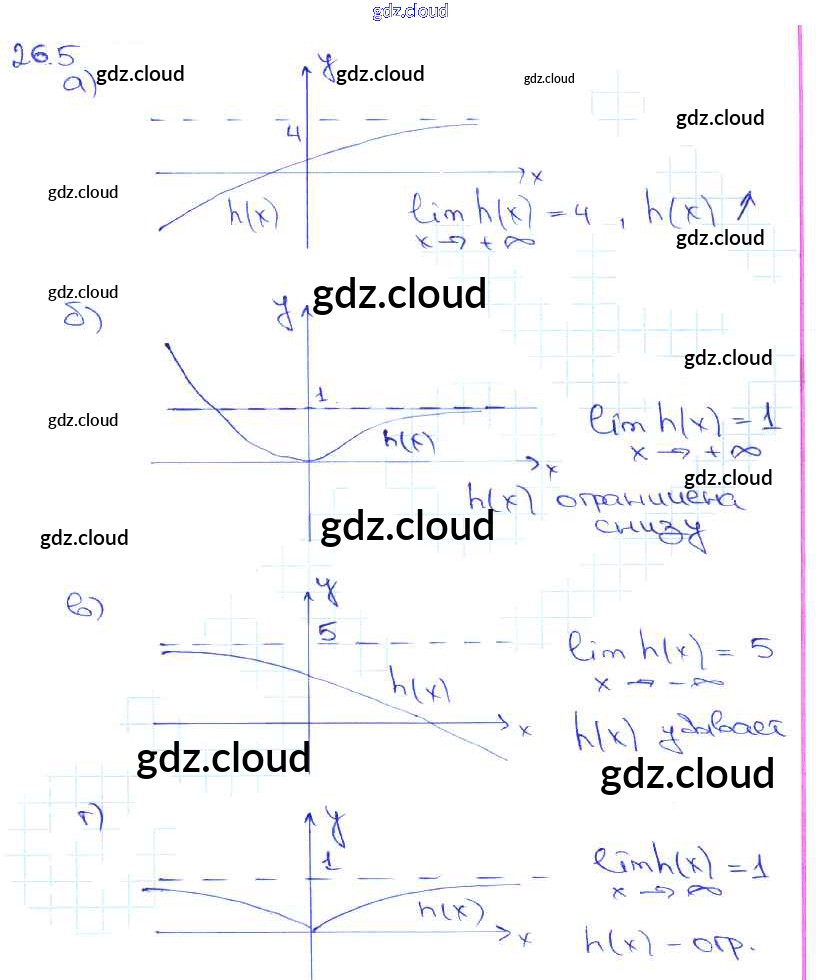 gdz.cloud
26.5
а) gdz.cloud y gdz.cloud gdz.cloud
4 gdz.cloud
x
gdz.cloud h(x) lim h(x) = 4 , h(x) ↑
x → +∞ gdz.cloud
gdz.cloud gdz.cloud
б) y
gdz.cloud
1
gdz.cloud h(x) lim h(x) = 1
x → +∞
x gdz.cloud
h(x) ограничена
снизу
gdz.cloud gdz.cloud
в) y
5
lim h(x) = 5
h(x) x → -∞
x h(x) убывает
gdz.cloud gdz.cloud
г) y
1
lim h(x) = 1
x → ∞
h(x)
x h(x) - огр.